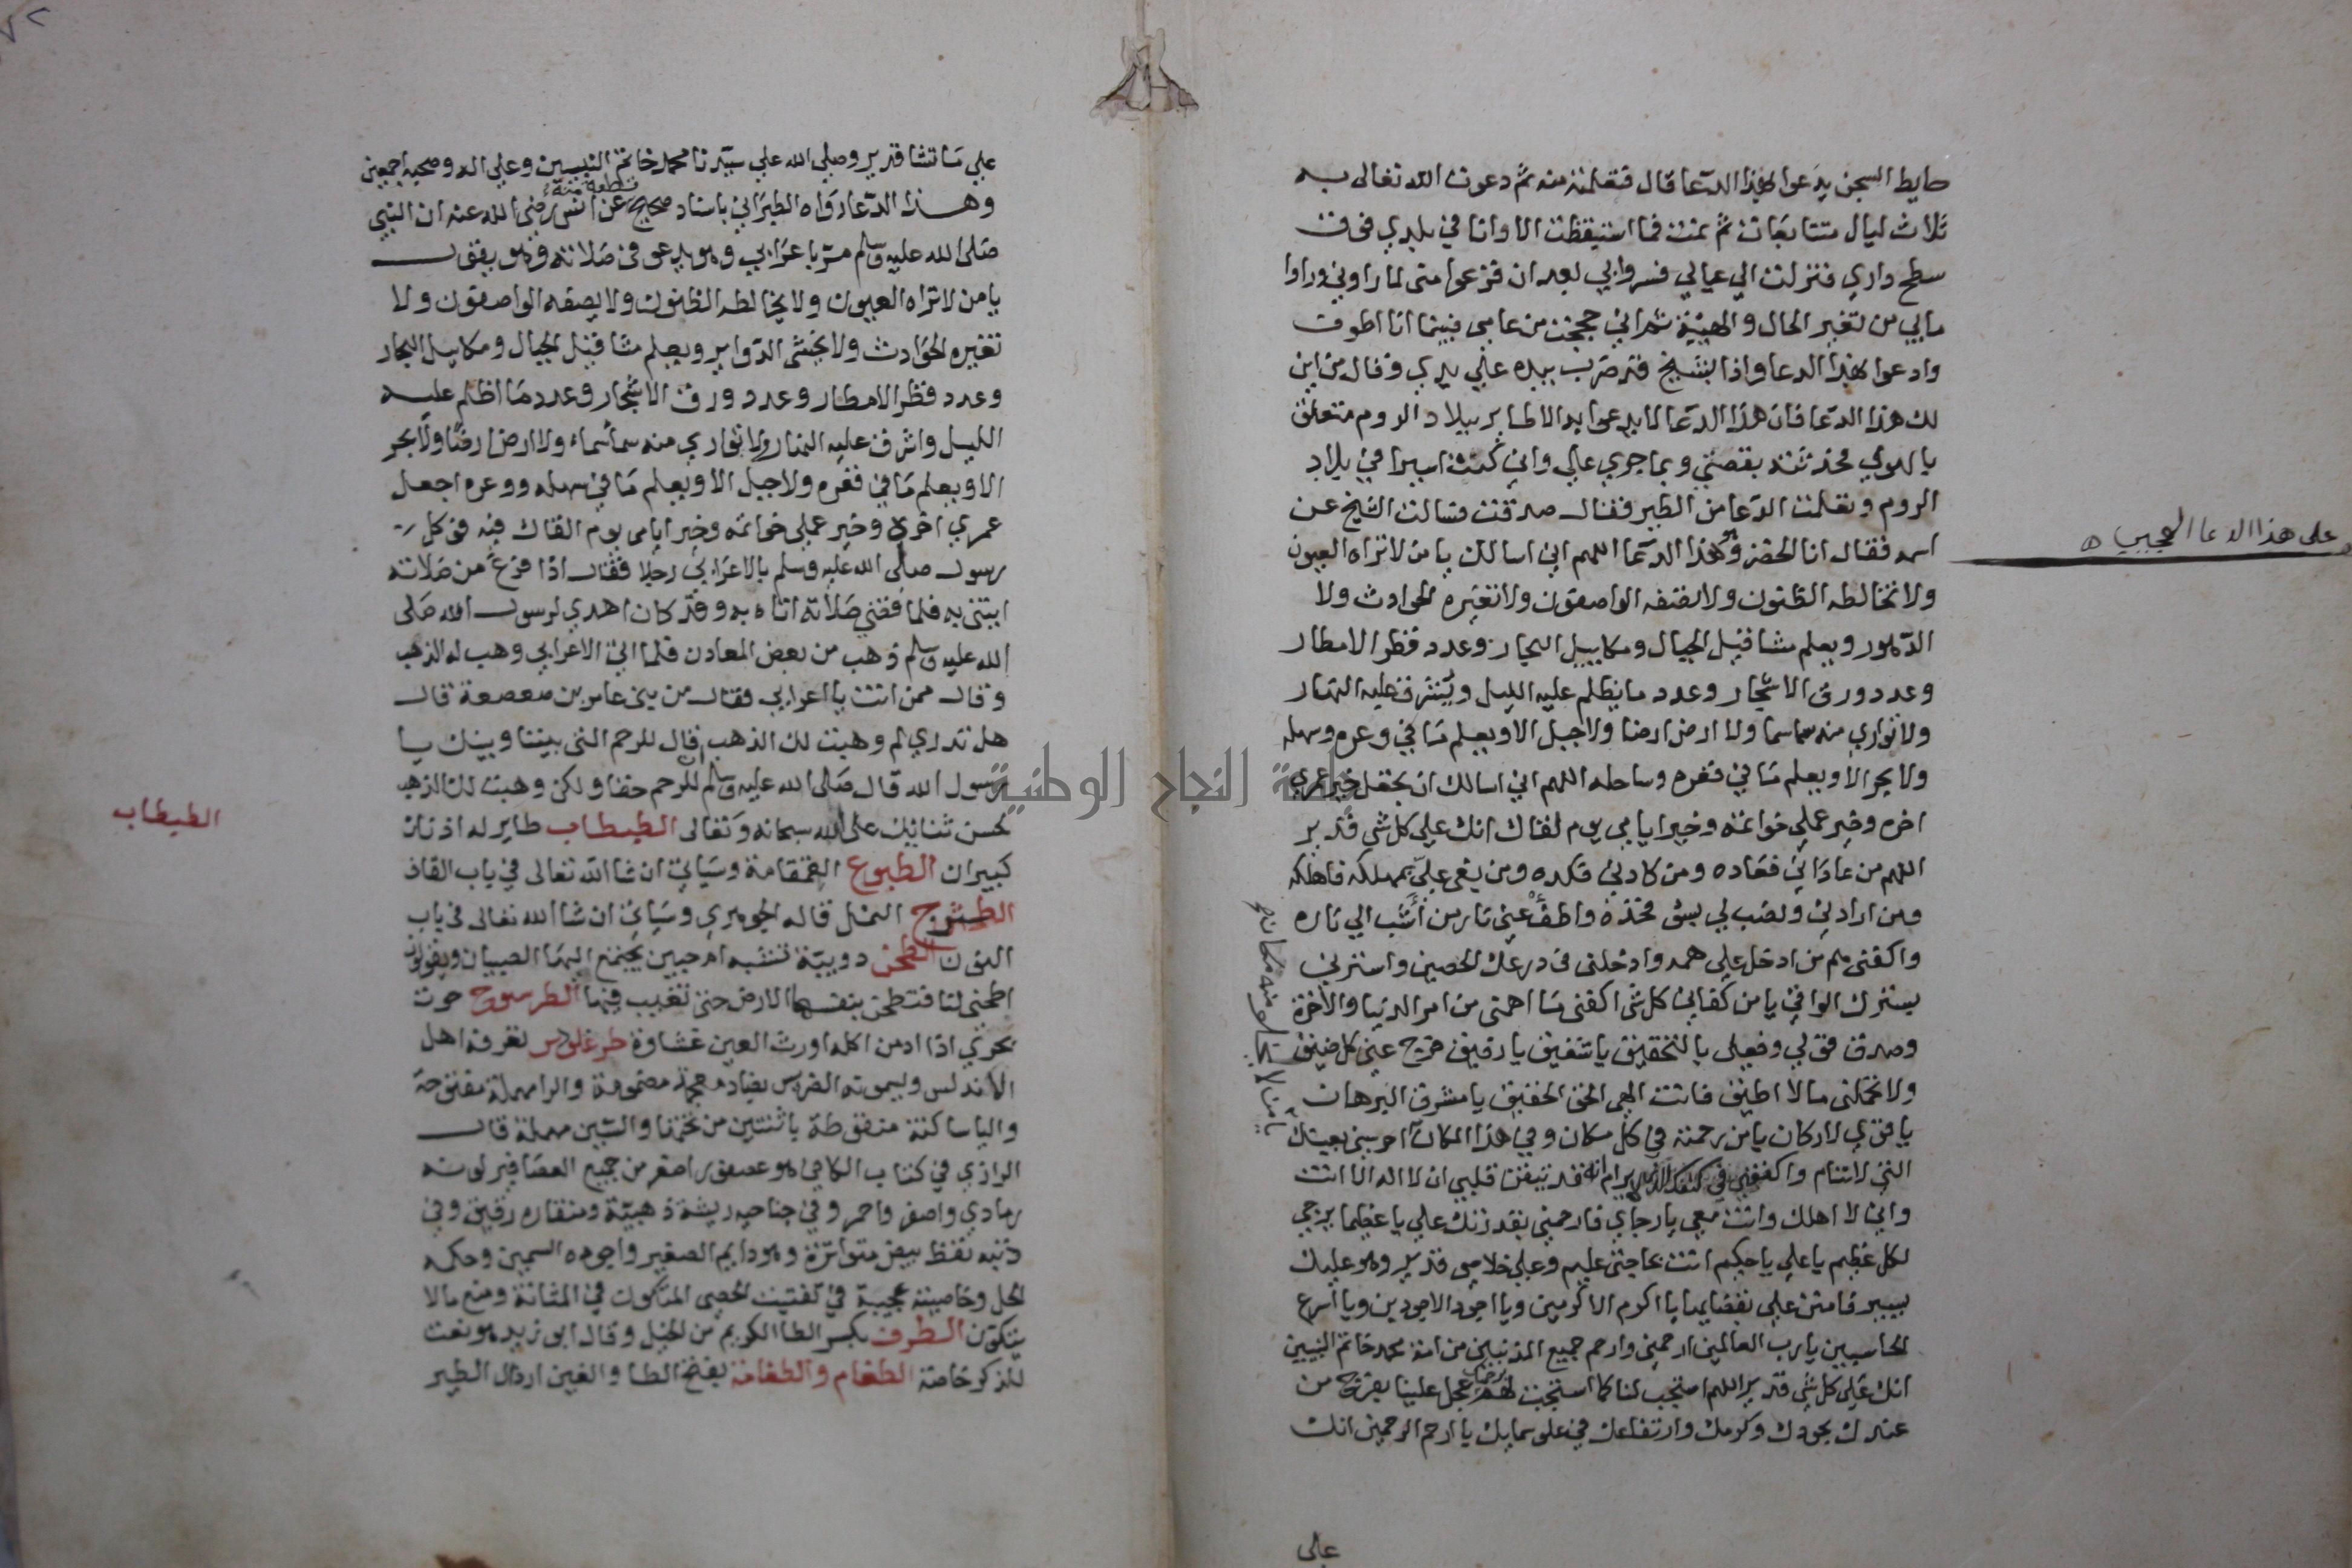 حايط السجن يدعوا بهذا الدعا قال فتعلمته منه ثم دعوت الله تعالى به
ثلاث ليال متتابعات ثم نمت فما استيقظت الا وانا في بلدي فوق
سطح داري فنزلت الي عيالي فسروا بي بعد ان فزعوا مني لما راوني وراوا
ما بي من تغير الحال والهيئة ثم اني حججت من عامي فبينما انا اطوف
وادعوا بهذا الدعا واذا بشيخ قد ضرب بيده علي يدي وقال من اين
لك هذا الدعا فان هذا الدعا لا يدعوا به الا طاير ببلاد الروم متعلق
بالهوي فحدثته بقصتي وبما جري علي واني كنت اسيرا في بلاد
الروم وتعلمت الدعا من الطير فقال صدقت فسالت الشيخ عن
اسمه فقال انا الخضر وهو هذا الدعا اللهم اني اسالك يا من لا تراه العيون
على هذا الدعا العجيب
ولا تخالطه الظنون ولا يصفه الواصفون ولا تغيره الحوادث ولا
الدهور ويعلم مثاقيل الجبال ومكاييل البحار وعدد قطر الامطار
وعدد ورق الاشجار وعدد ما يظلم عليه الليل ويشرق عليه النهار
ولا تواري منه سما سما ولا ارض ارضا ولا جبل الا ويعلم ما في وعره وسهله
ولا بحر الا ويعلم ما في قعره وساحله اللهم اني اسالك ان تجعل خير عمري
اخره وخير عملي خواتمه وخير ايامي يوم لقاك انك علي كل شي قدير
اللهم من عاداني فعاده ومن كادني فكده ومن بغي علي بمهلكه فاهلكه
ومن ارادني بسوء فخذه واطف عني نار من اشب الي ناره
واكفني هم من ادخل علي همه وادخلني في درعك الحصين واسترني
بسترك الواقي يا من كفاني كل شي اكفني ما اهمني من امر الدنيا والاخرة
وصدق قولي وفعلي بالتحقيق يا شفيق يا رفيق فرج عني كل ضيق
ولا تحملني ما لا اطيق فانت الهي الحق الحقيق يا مشرق البرهان
يا قوي الاركان يا من رحمته في كل مكان وفي هذا المكان احرسني بعينك
يا من لا يخلو منه مكان
التي لا تنام واكنفني في كنفك الذي لا يرام انه قد تيقن قلبي ان لا اله الا انت
واني لا اهلك وانت معي يا رجاي فارحمني بقدرتك علي يا عظيما يرجي
لكل عظيم يا علي يا حكيم انت بحاجتي عليم وعلي خلاصي قدير وهو عليك
يسير فامنن علي بقضايها يا اكرم الاكرمين ويا اجود الاجودين ويا اسرع
الحاسبين يا رب العالمين ارحمني وارحم جميع المذنبين من امة محمد خاتم النبيين
انك علي كل شي قدير اللهم استجب لنا كما استجبت لهم برحمتك عجل علينا بفرج من
عندك بجودك وكرمك وارتفاعك في علو سمايك يا ارحم الراحمين انك
علي
علي ما تشا قدير وصلي الله علي سيدنا محمد خاتم النبيين وعلي اله وصحبه اجمعين
وهذا الدعا رواه الطبراني باسناد صحيح قطعة منه عن انس رضي الله عنه ان النبي
صلى الله عليه وسلم مر باعرابي وهو يدعو في صلاته وهو يقول
يا من لا تراه العيون ولا يخالطه الظنون ولا يصفه الواصفون ولا
تغيره الحوادث ولا يخشي الدواير ويعلم مثاقيل الجبال ومكاييل البحار
وعدد قطر الامطار وعدد ورق الاشجار وعدد ما اظلم عليه
الليل واشرق عليه النهار ولا تواري منه سما سماء ولا ارض ارضا ولا بحر
الا ويعلم ما في قعره ولا جبل الا ويعلم ما في سهله ووعره اجعل
عمري اخره وخير عملي خواتمه وخير ايامي يوم القاك فيه فوكل
رسول صلى الله عليه وسلم بالاعرابي رجلا فقال اذا فرغ من صلاته
ايتني به فلما قضي صلاته اتاه به وقد كان اهدي لرسول الله صلى
الله عليه وسلم ذهب من بعض المعادن فلما اتي الاعرابي وهب له الذهب
وقال ممن انت يا اعرابي فقال من بني عامر بن صعصعة قال
هل تدري لم وهبت لك الذهب قال للرحم التي بيننا وبينك يا
رسول الله قال صلى الله عليه وسلم ان للرحم حقا ولكن وهبت لك الذهب
لحسن ثنائك على الله سبحانه وتعالى الطيطاب طاير له اذنان
الطيطاب
كبيران الطبوع القمقامة وسياتي ان شا الله تعالى في باب القاف
الطثرج النمل قاله الجوهري وسياتي ان شا الله تعالى في باب
النون الطحن دويبة تشبه ام حبين يجتمع اليها الصبيان ويقولون
اطحني لنا فتطحن بنفسها الارض حتى تغيب فيها الطرسوج حوت
بحري اذا ادمن اكله اورث العين غشاوة طرغلودس تعرفه اهل
الاندلس ويسمونه الضريس بضاد معجمة مضمومة والرا مهملة مفتوحة
واليا ساكنة منقوطة باثنتين من تحتها والسين مهملة قال
الرازي في كتاب الكافي هو عصفور اصغر من جميع العصافير لونه
رمادي واصفر واحمر وفي جناحيه ريشة ذهبية ومنقاره رقيق وفي
ذنبه نقط بيض متواترة وهو دايم الصفير واجوده السمين وحكمه
الحل وخاصيته عجيبة في تفتيت الحصى المتكون في المثانة ومنع ما لا
يتكون الطرف بكسر الطا الكريم من الخيل وقال ابو زيد هو نعت
للذكر خاصة الطغام والطغامة بفتح الطا والغين ارذال الطير
جامعة النجاح الوطنية